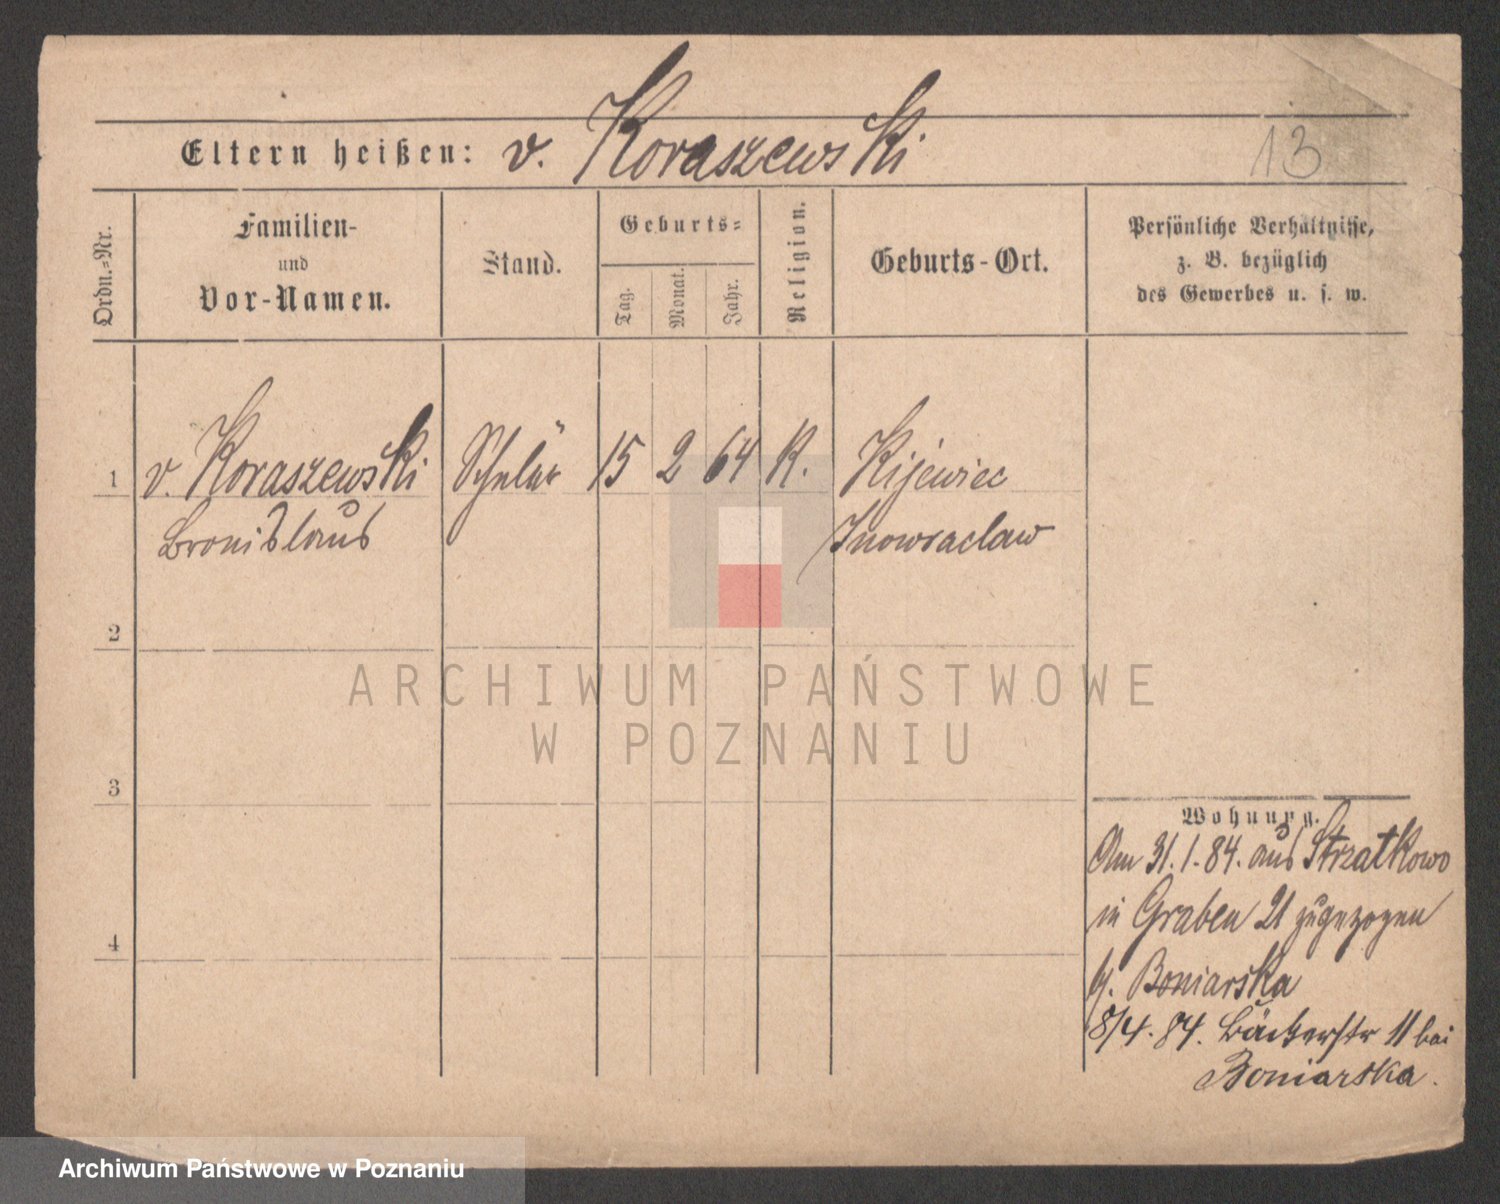 Eltern heißen: v. Koraszewski
13
Ordn.-Nr.
Familien-
und
Vor-Namen.
Stand.
Geburts-
Tag.
Monat.
Jahr.
Religion.
Geburts-Ort.
Persönliche Verhältnisse,
z. B. bezüglich
des Gewerbes u. s. w.
1 v. Koraszewski Schüler 15 2 64 K. Kijewiec
Bronislaus Inowraclaw
2
ARCHIWUM PAŃSTWOWE
W POZNANIU
3
Wohnung.
Am 31.1.84. aus Strzałkowo
in Graben 21 zugezogen
4
b/. Boniarska
8/4.84. Bäckerstr 11 bei
Boniarska.
Archiwum Państwowe w Poznaniu